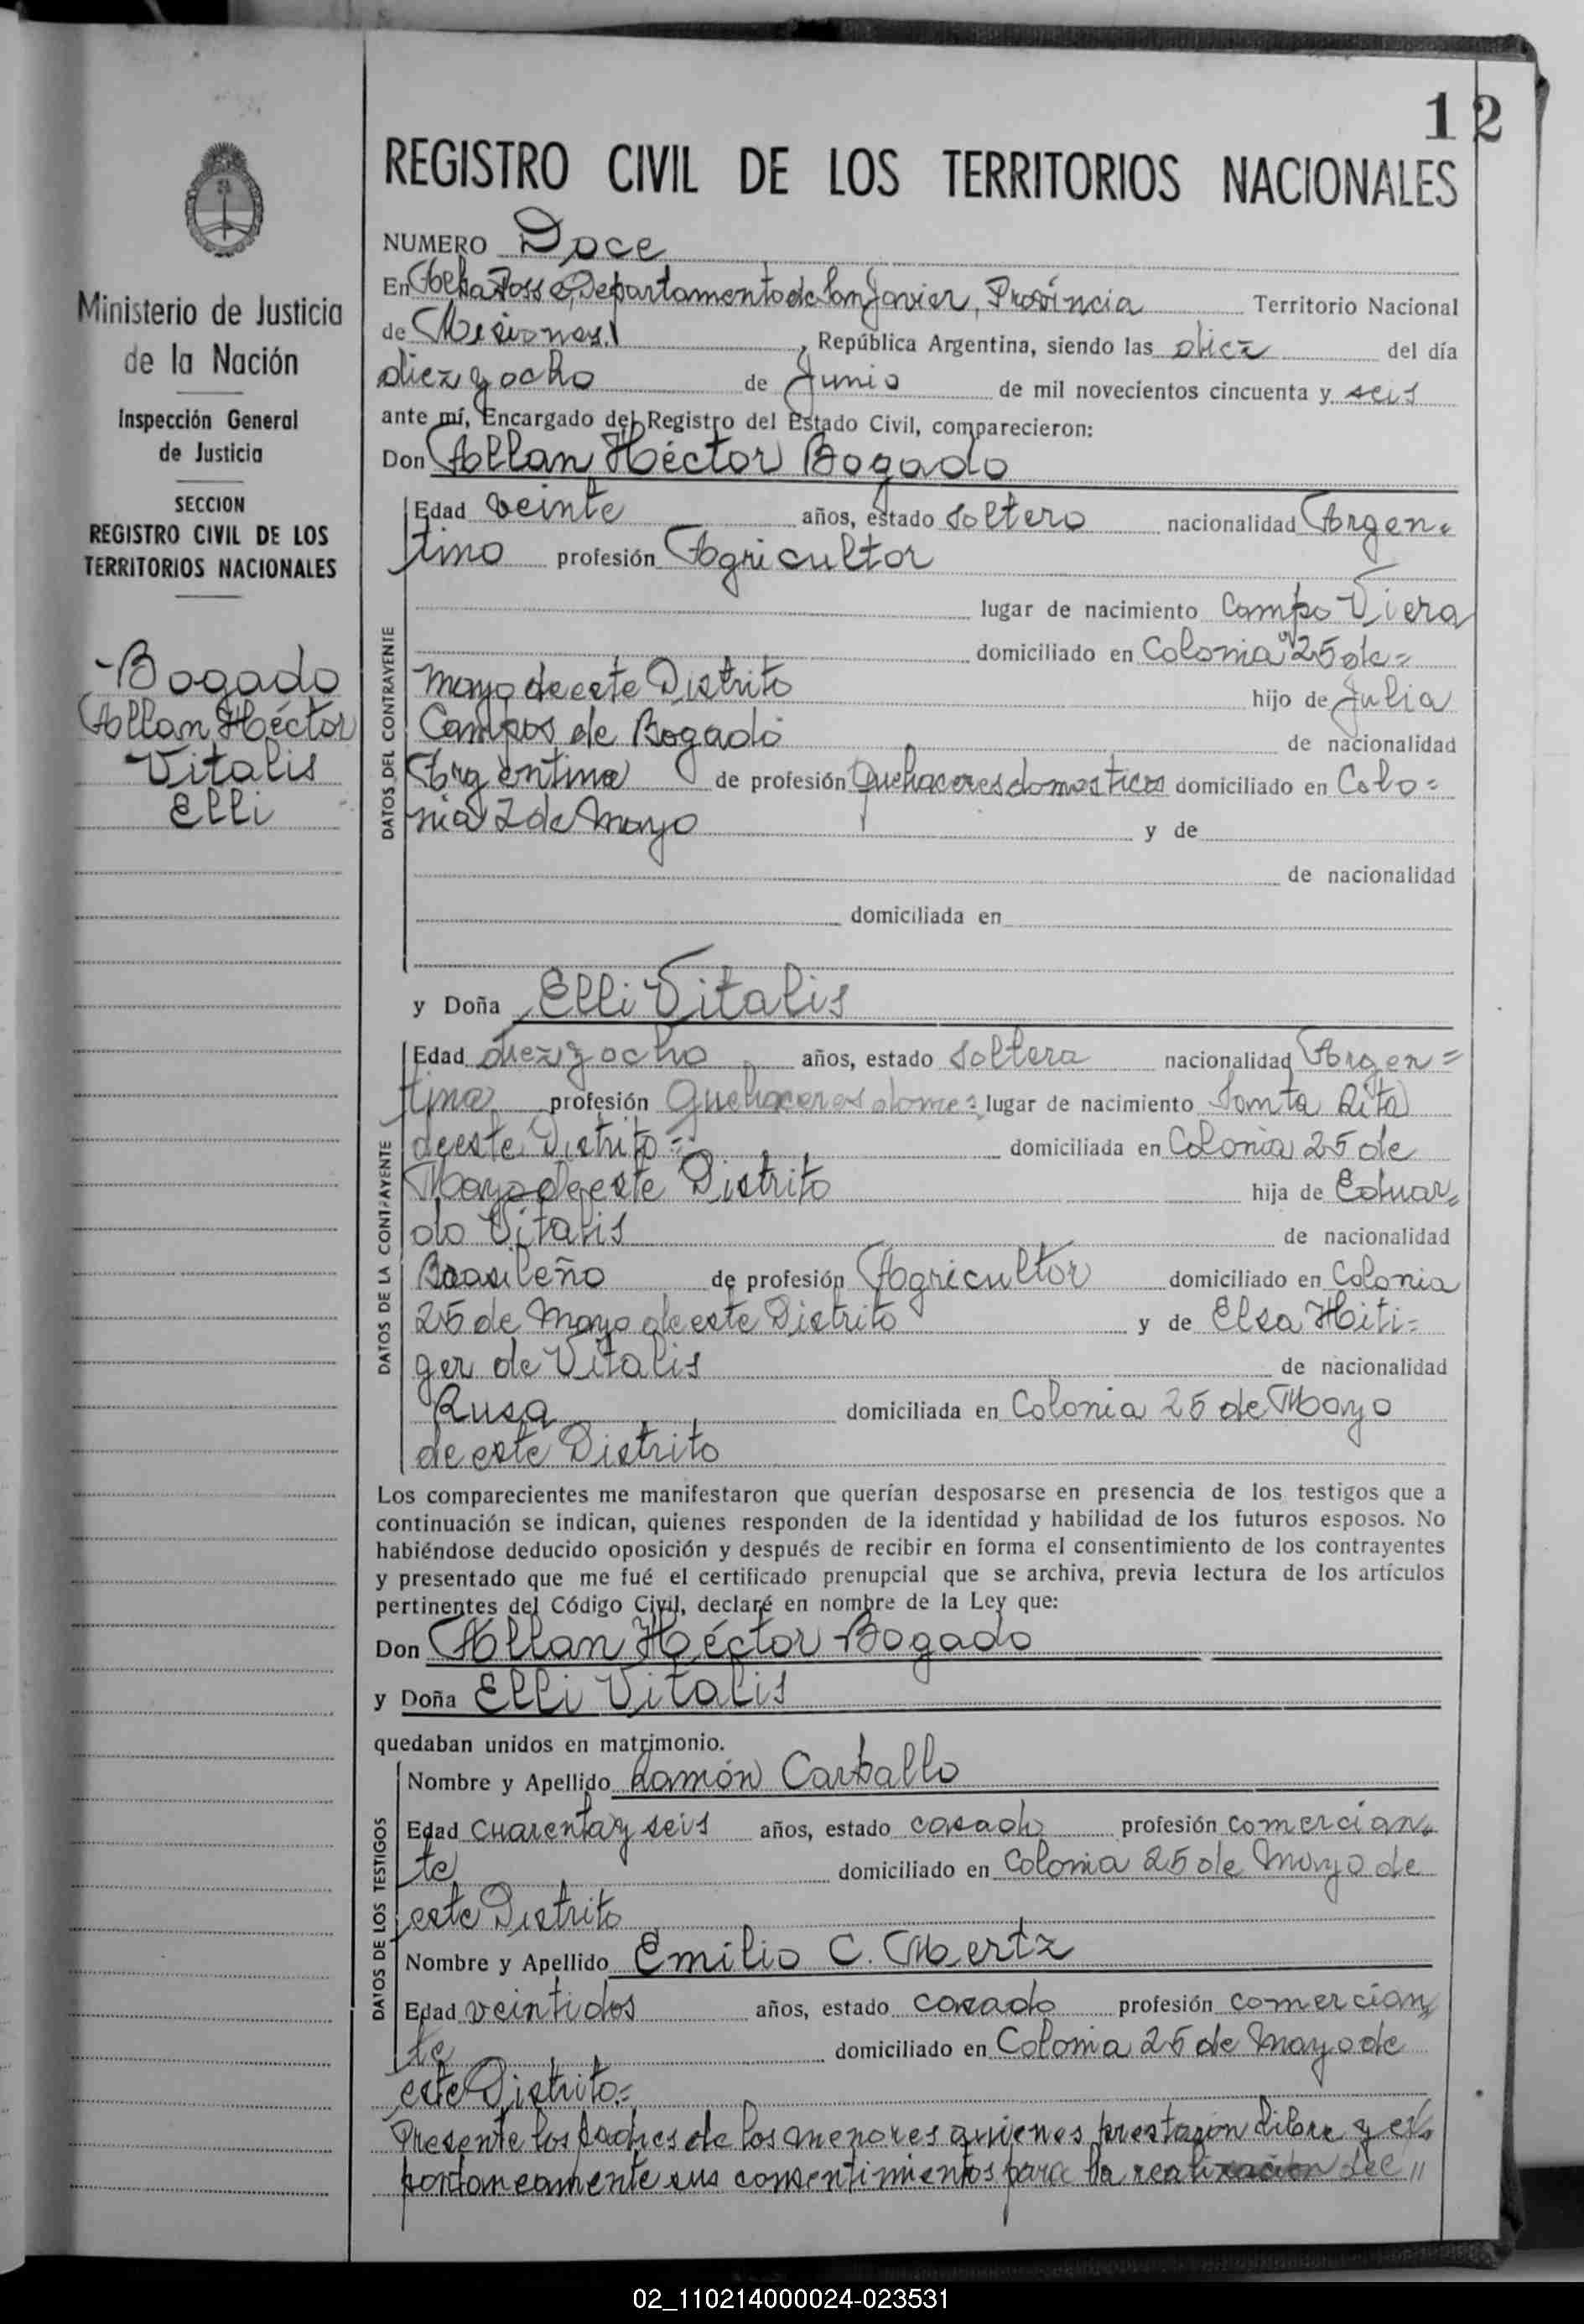 12
REGISTRO CIVIL DE LOS TERRITORIOS NACIONALES
Ministerio de Justicia
de la Nación
Inspección General
de Justicia
SECCION
REGISTRO CIVIL DE LOS
TERRITORIOS NACIONALES
-Bogado
Allan Héctor
Vitalis
Elli
NUMERO Doce
En Alba Posse, Departamento de San Javier, Provincia Territorio Nacional
de Misiones, República Argentina, siendo las diez del día
diez y ocho de Junio de mil novecientos cincuenta y seis
ante mí, Encargado del Registro del Estado Civil, comparecieron:
Don Allan Héctor Bogado
DATOS DEL CONTRAYENTE
Edad veinte años, estado Soltero nacionalidad Argen=
tino profesión Agricultor
lugar de nacimiento Campo Viera
domiciliado en Colonia 25 de=
Mayo de este Distrito hijo de Julia
Campos de Bogado de nacionalidad
Argentina de profesión Quehaceres domesticos domiciliado en Colo=
nia 2 de Mayo y de
de nacionalidad
domiciliada en
y Doña Elli Vitalis
DATOS DE LA CONTRAYENTE
Edad diez y ocho años, estado Soltera nacionalidad Argen=
tina profesión Quehaceres domes: lugar de nacimiento Santa Rita
de este Distrito=: domiciliada en Colonia 25 de
Mayo de este Distrito hija de Eduar=
do Vitalis de nacionalidad
Brasileño de profesión Agricultor domiciliado en Colonia
25 de Mayo de este Distrito y de Elsa Hiti=
ger de Vitalis de nacionalidad
Rusa domiciliada en Colonia 25 de Mayo
de este Distrito
Los comparecientes me manifestaron que querían desposarse en presencia de los testigos que a
continuación se indican, quienes responden de la identidad y habilidad de los futuros esposos. No
habiéndose deducido oposición y después de recibir en forma el consentimiento de los contrayentes
y presentado que me fué el certificado prenupcial que se archiva, previa lectura de los artículos
pertinentes del Código Civil, declaré en nombre de la Ley que:
Don Allan Héctor Bogado
y Doña Elli Vitalis
quedaban unidos en matrimonio.
DATOS DE LOS TESTIGOS
Nombre y Apellido Ramón Carballo
Edad cuarenta y seis años, estado casado profesión comercian=
te domiciliado en Colonia 25 de Mayo de
este Distrito
Nombre y Apellido Emilio C. Mertz
Edad veintidos años, estado casado profesión comercian=
te domiciliado en Colonia 25 de Mayo de
este Distrito=
Presente los padres de los menores quienes prestaron libre y es=
pontaneamente sus consentimientos para la realización del //
02_110214000024-023531